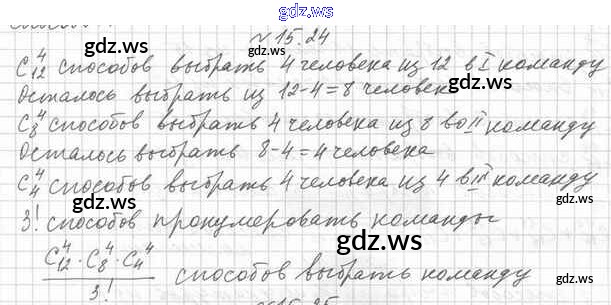 gdz.ws
№15.24
C₁₂⁴ способов выбрать 4 человека из 12 в I команду
gdz.ws gdz.ws gdz.ws
Осталось выбрать из 12-4=8 человек
C₈⁴ способов выбрать 4 человека из 8 во II команду
gdz.ws gdz.ws gdz.ws
Осталось выбрать 8-4=4 человека
C₄⁴ способов выбрать 4 человека из 4 в III команду
3! способов пронумеровать команды
gdz.ws gdz.ws gdz.ws
C₁₂⁴·C₈⁴·C₄⁴/3! способов выбрать команду